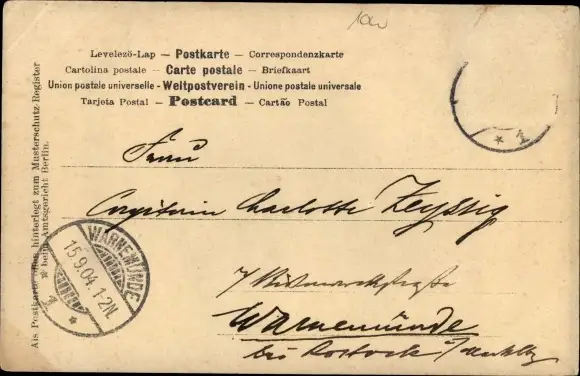 Levelező-Lap — Postkarte — Correspondenzkarte
Cartolina postale — Carte postale — Briefkaart
Union postale universelle - Weltpostverein - Unione postale universale
Tarjeta Postal — Postcard — Cartão Postal
Als Postkarte offen hinterlegt zum Musterschutz-Register
beim Amtsgericht Berlin.
Frau
Capitain Charlotte Zeyssig
Bismarckstraße
Warnemünde
bei Rostock i/
WARNEMÜNDE
15.9.04.1-2N.
* 1 *
* 1